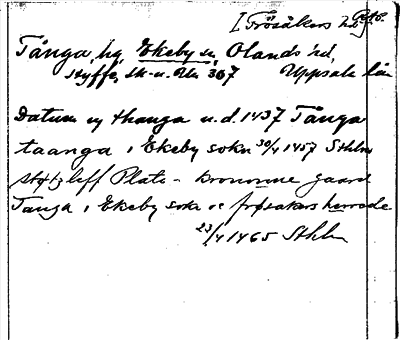 [Frösåkers hd].
Tånga, hg, Ekeby sn, Olands hd,
Styffe, Sk. u. Un 367 Uppsala län
Datum ey thanga u.d. 1437 Tånga
taanga i Ekeby sokn 30/4 1457 Sthlm
Plate - kronenne gaard
Tanga i Ekeby sokn oc frøsakers herrade
23/4 1465 Sthlm